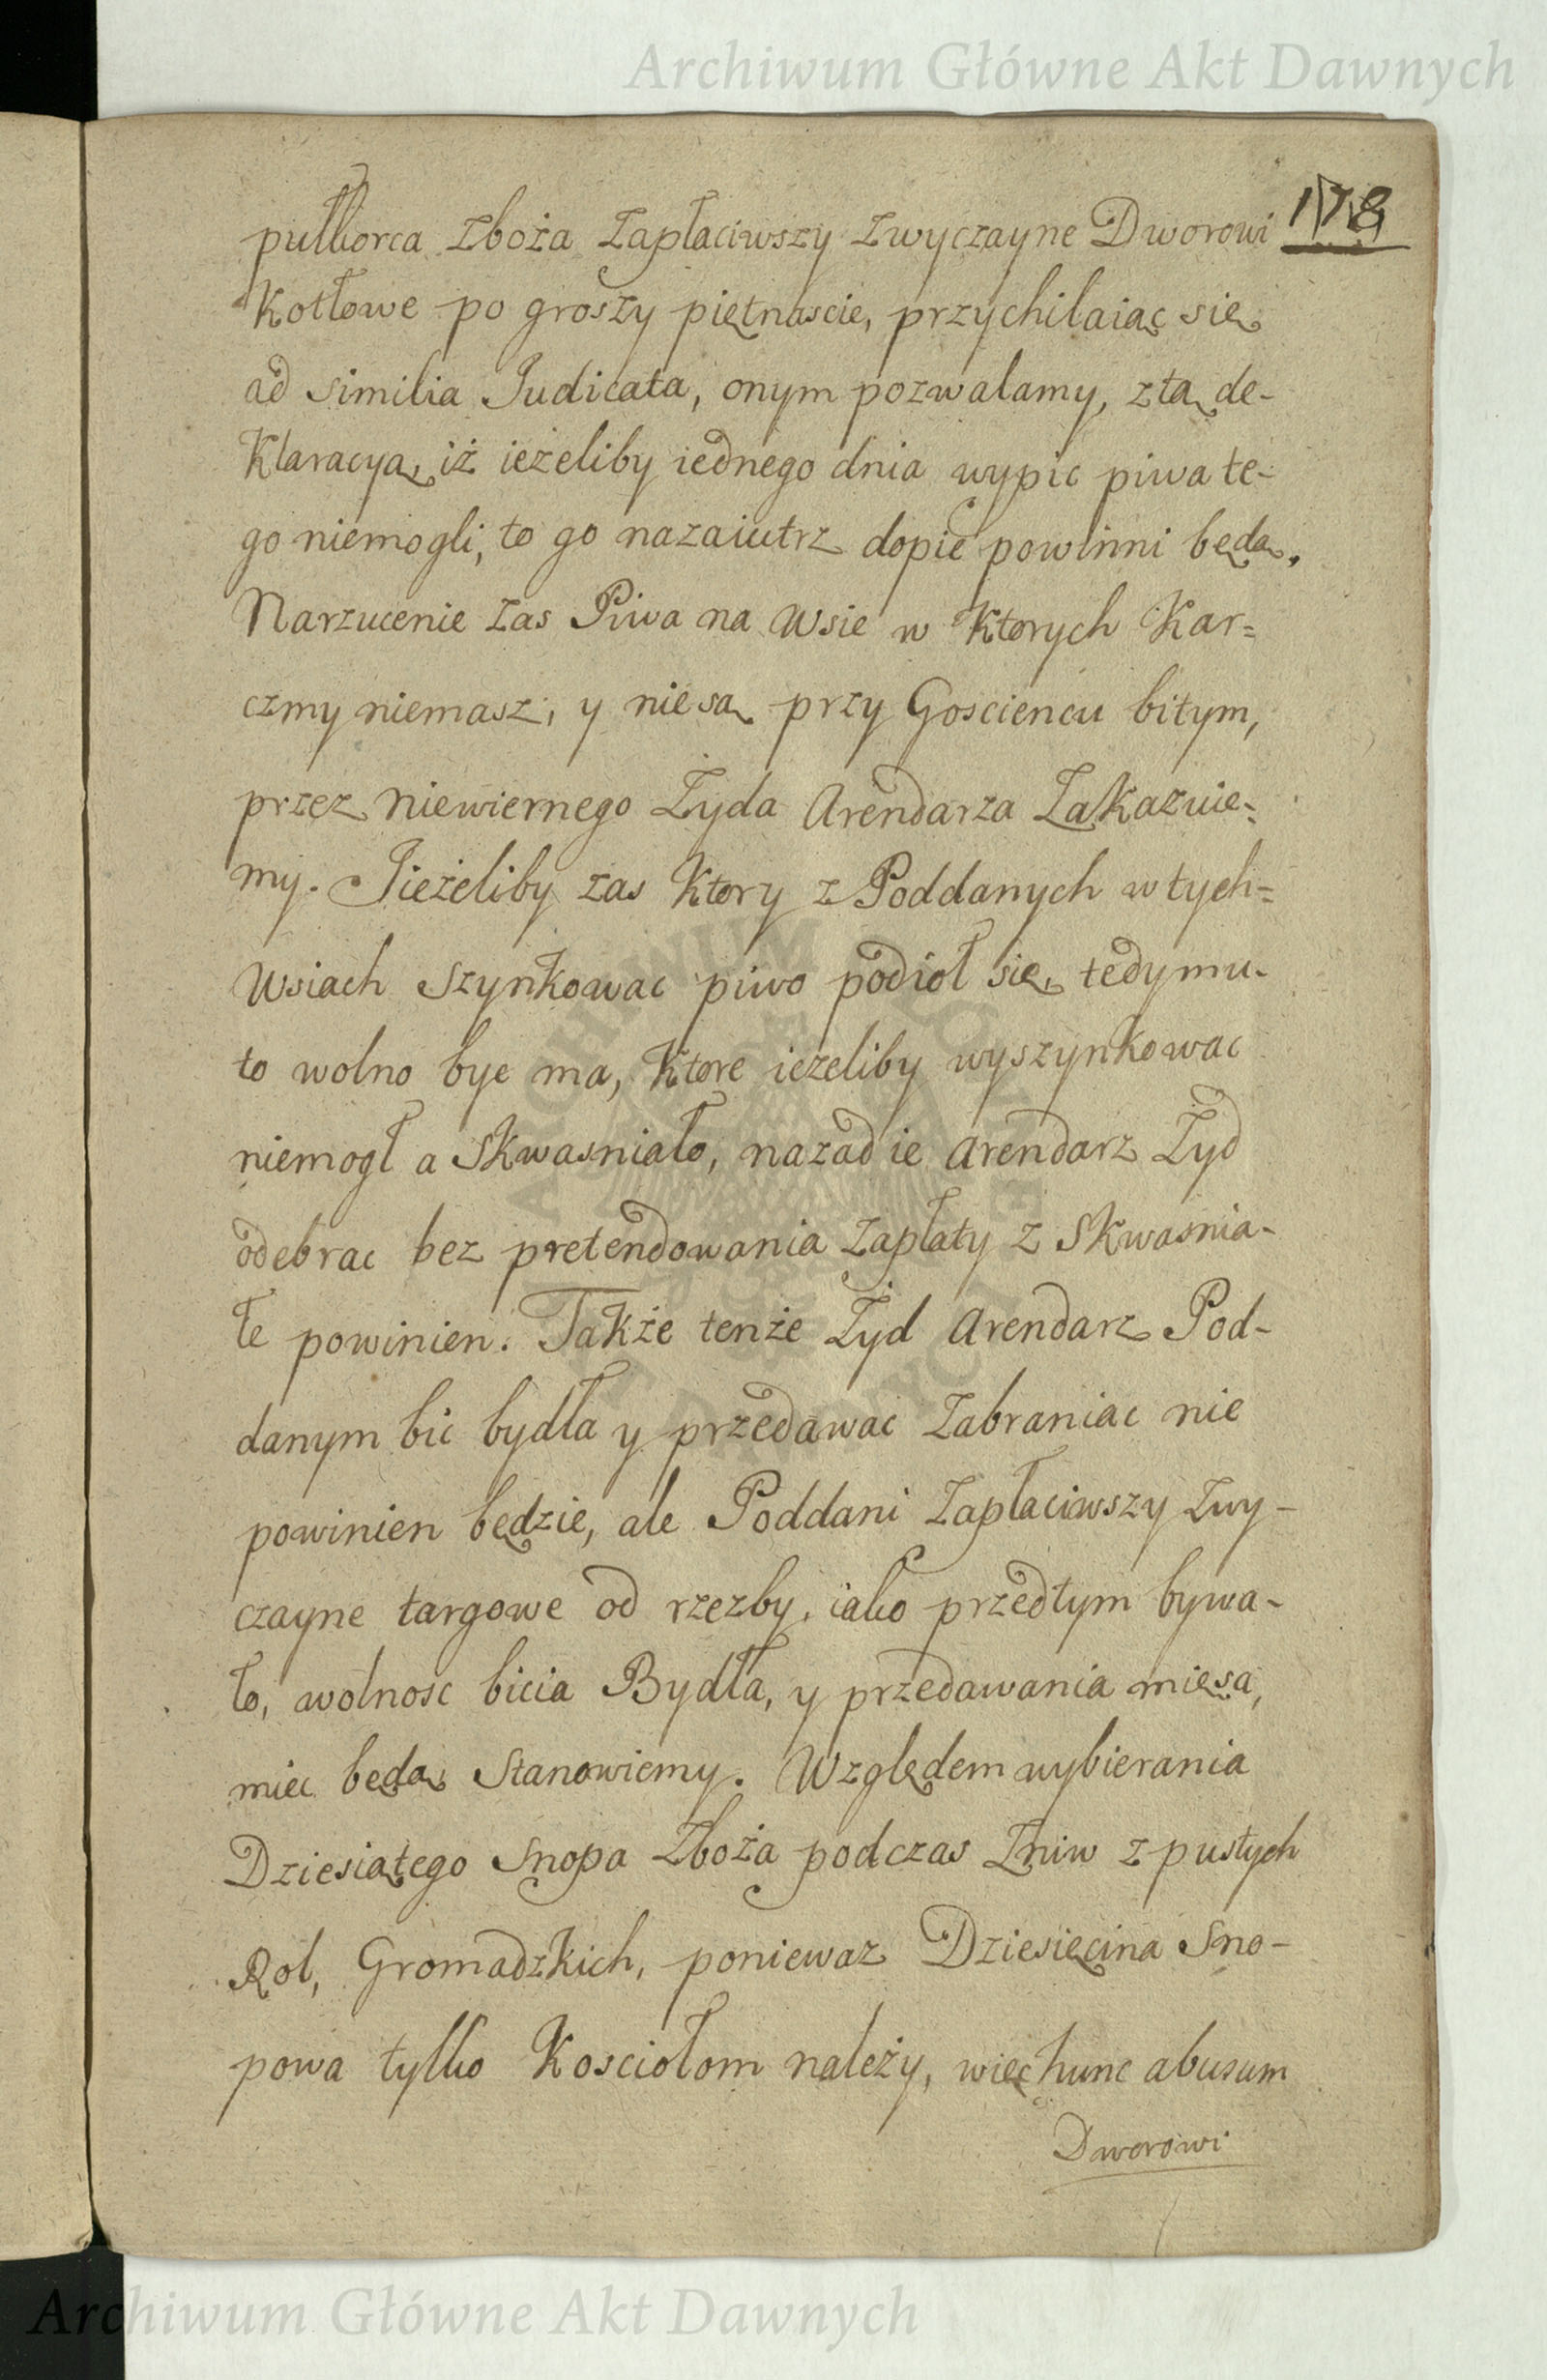 Archiwum Główne Akt Dawnych
178
pułkorca zboża zapłaciwszy zwyczayne Dworowi
Kotłowe po groszy piętnascie, przychilaiąc się
ad similia Judicata, onym pozwalamy, z tą de-
Klaracyą, iż ieżeliby iednego dnia wypic piwa te-
go niemogli, to go nazaiutrz dopic powinni będą.
Narzucenie zas Piwa na Wsie w Ktorych Kar=
czmy niemasz, y nie są przy Goscieńcu bitym,
przez niewiernego Żyda Arendarza Zakazuie-
my. Jieżeliby zas Ktory z Poddanych w tych=
Wsiach Szynkowac piwo podioł się, tedy mu-
to wolno byc ma, Ktore ieżeliby wyszynkowac
niemogł a Skwasniało, nazad ie Arendarz Żyd
odebrac bez pretendowania zapłaty z Skwasnia-
łe powinien. Także tenże Żyd Arendarz Pod-
danym bic bydła y przedawac Zabraniac nie
powinien będzie, ale Poddani Zapłaciwszy Zwy-
czayne targowe od rzezby, iako przedtym bywa-
ło, wolnosc bicia Bydła, y przedawania mięsa,
miec będą Stanowiemy. Względem wybierania
Dziesiątego Snopa Zboża podczas Żniw z pustych
Rol, Gromadzkich, poniewaz Dziesięcina Sno-
powa tylko Kosciołom należy, więc hunc abusum
Dworowi
Archiwum Główne Akt Dawnych